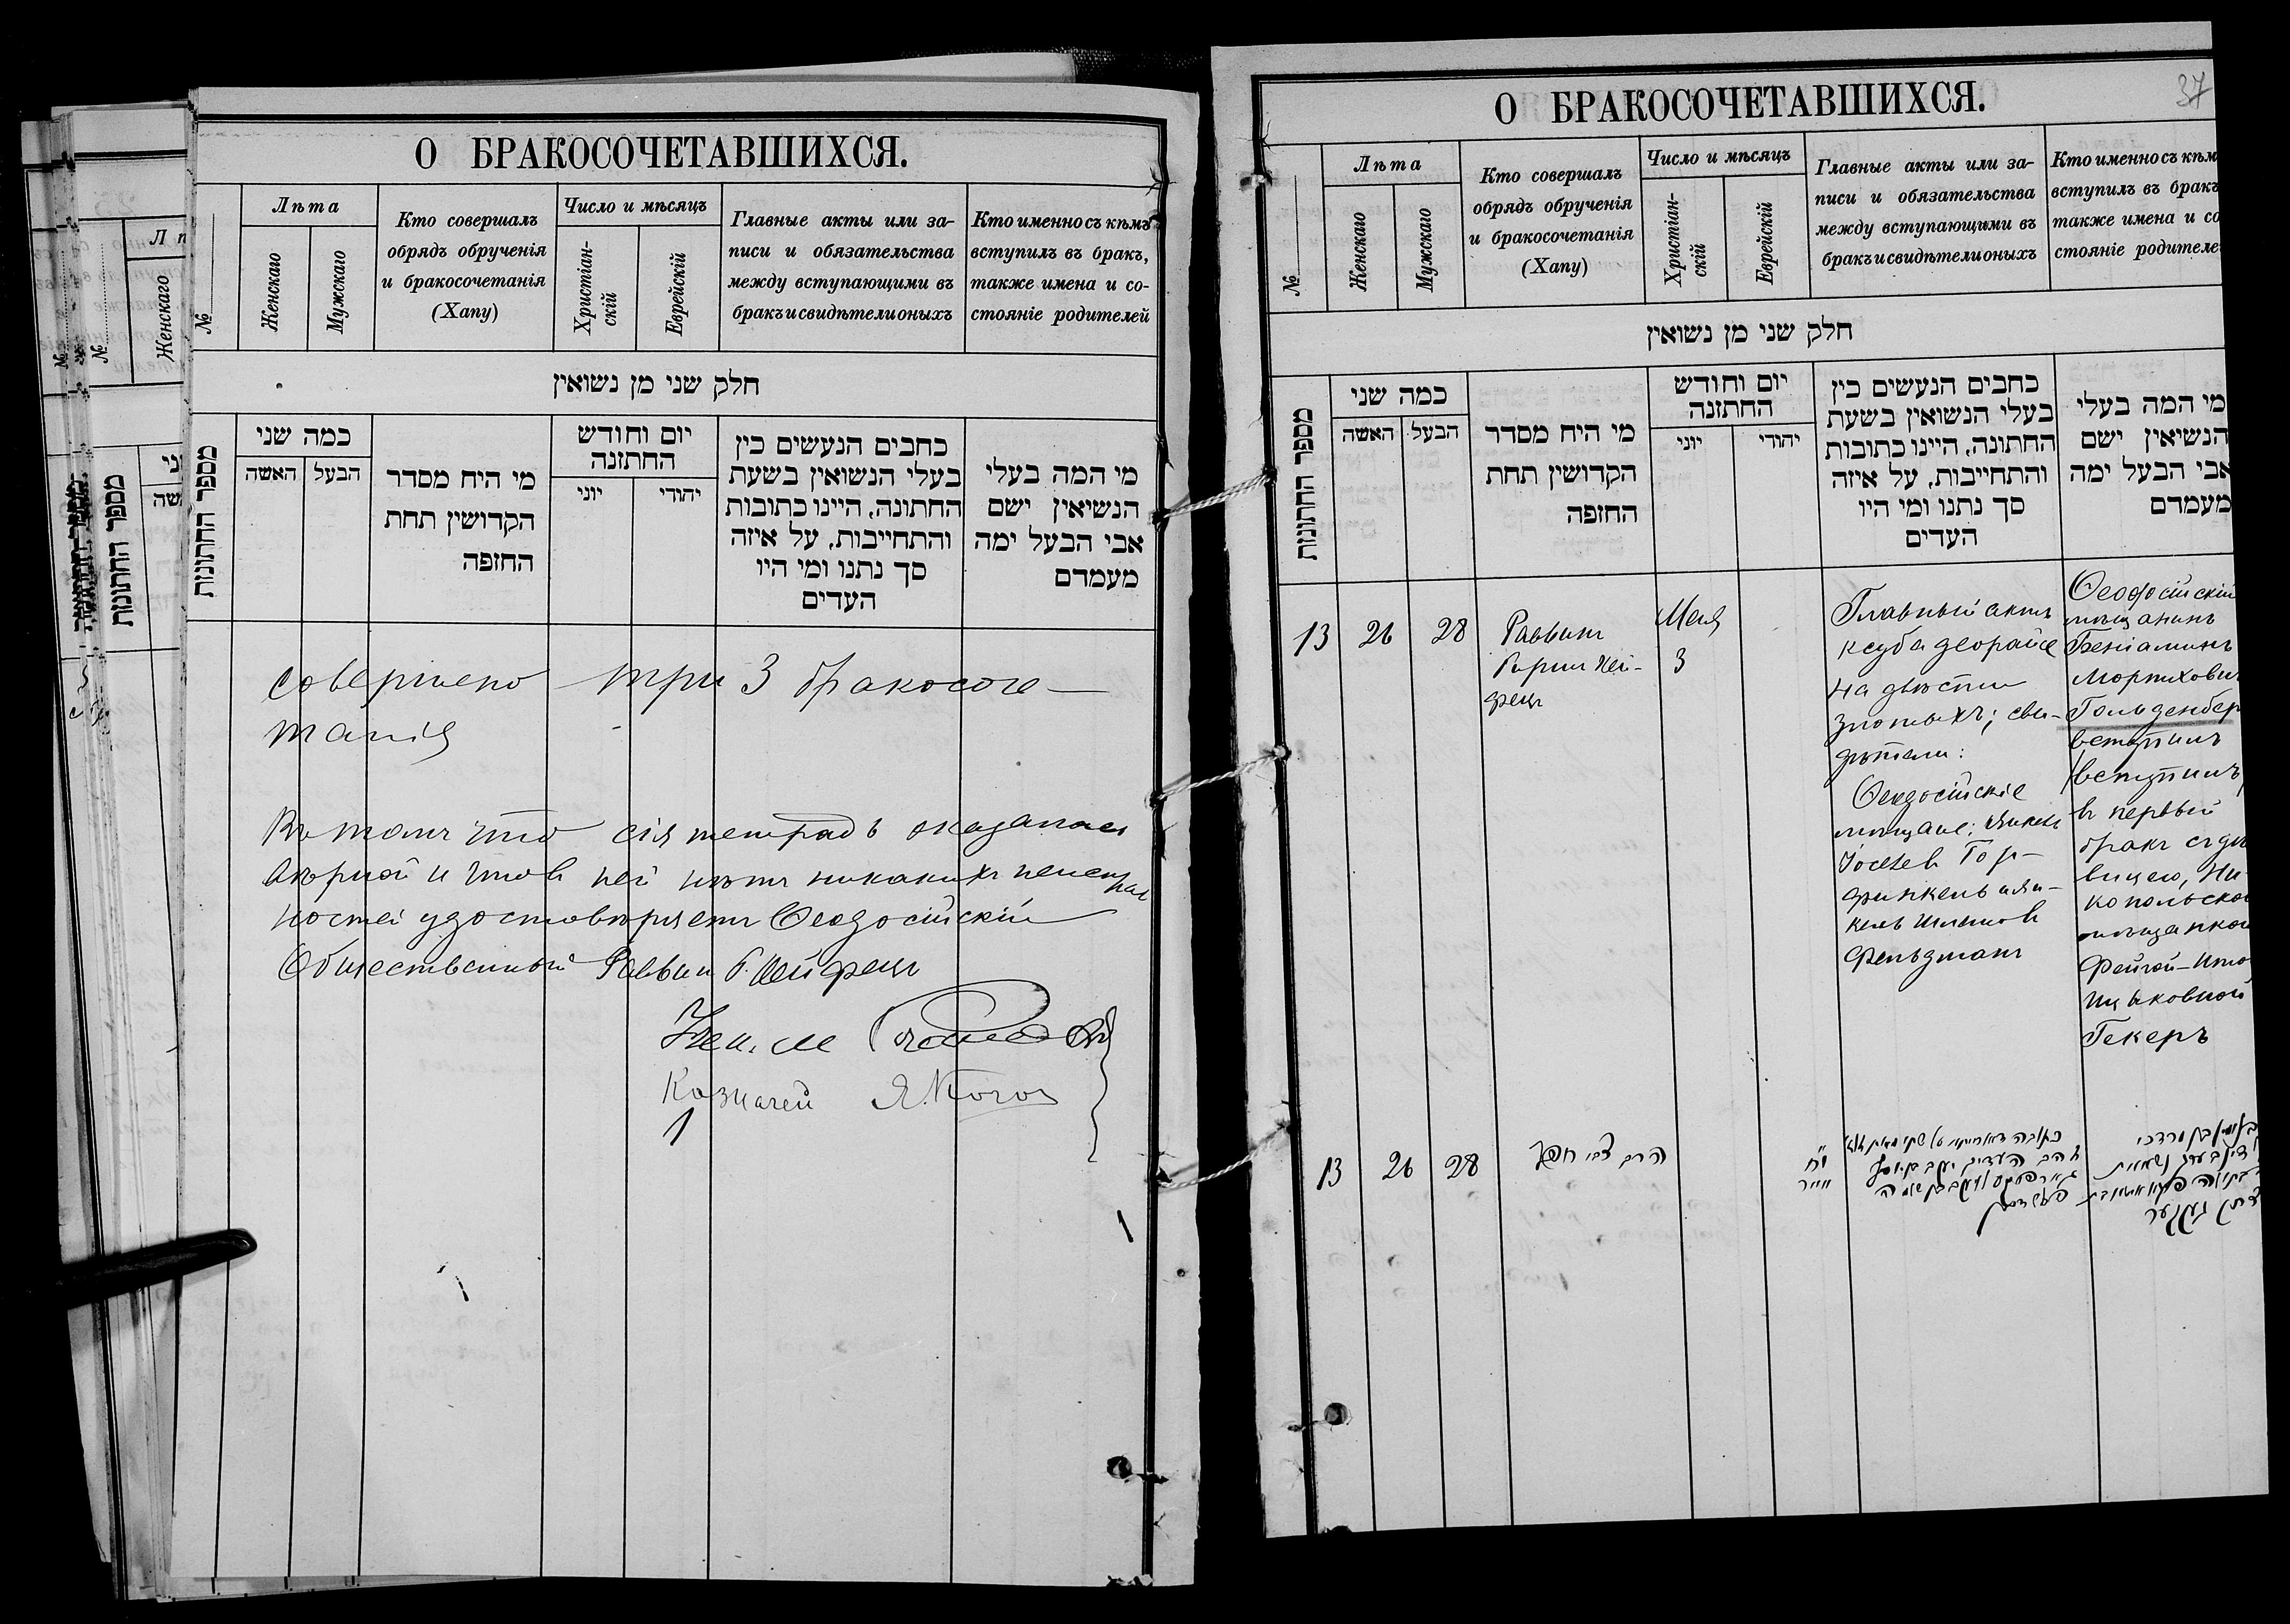 О БРАКОСОЧЕТАВШИХСЯ.
№
Лѣта
Женскаго
Мужскаго
Кто совершалъ
обрядъ обрученія
и бракосочетанія
(Хапу)
Число и мѣсяцъ
Христіан-
скій
Еврейскій
Главные акты или за-
писи и обязательства
между вступающими въ
бракъ и свидѣтели оныхъ
Кто именно съ кѣмъ
вступилъ въ бракъ,
также имена и со-
стояніе родителей
חלק שני מן נשואין
מספר החתונות
כמה שני
האשה
הבעל
מי היח מסדר
הקדושין תחת
החזפה
יום וחודש
החתזנה
יוני
יהודי
כחבים הנעשים כין
בעלי הנשואין בשעת
החתונה, היינו כתובות
והתחייבות, על איזה
סך נתנו ומי היו
העדים
מי המה בעלי
הנשיאין ישם
אבי הבעל ימה
מעמדם
совершено три 3 бракосоче-
танія
Въ томъ что сія тетрадь оказалась
вѣрной и что въ ней нѣтъ никакихъ
ностей удостовѣряетъ Ѳеодосійскій
Общественный Раввинъ Г. Хейфецъ
Казначей
О БРАКОСОЧЕТАВШИХСЯ.
37
№
Лѣта
Женскаго
Мужскаго
Кто совершалъ
обрядъ обрученія
и бракосочетанія
(Хапу)
Число и мѣсяцъ
Христіан-
скій
Еврейскій
Главные акты или за-
писи и обязательства
между вступающими въ
бракъ и свидѣтели оныхъ
Кто именно съ кѣм
вступилъ въ бракъ
также имена и со
стояніе родителе
חלק שני מן נשואין
מספר החתונות
כמה שני
האשה
הבעל
מי היח מסדר
הקדושין תחת
החזפה
יום וחודש
החתזנה
יוני
יהודי
כחבים הנעשים כין
בעלי הנשואין בשעת
החתונה, היינו כתובות
והתחייבות, על איזה
סך נתנו ומי היו
העדים
מי המה בעלי
הנשיאין ישם
אבי הבעל ימה
מעמדם
13 26 28
Раввинъ
Гирш Хей-
фецъ
Мая
3
Главный актъ
ксуба деорайсе
на двѣсти
злотыхъ; сви-
дѣтели:
Ѳеодосійскіе
мѣщане: Янкель
Іосевъ Гор-
финкель и Ян-
кель Шлемовъ
Фельдманъ
Ѳеодосійскій
мѣщанинъ
Беніаминъ
Мортховичъ
Гольденбер
вступилъ
(вступилъ)
въ первый
бракъ съ дѣ
вицею, Ни
копольской
мѣщанкой
Фейгой-Ито
Ицыковной
Гекеръ
13 26 28
הרב צבי חפץ
י"ח
אייר